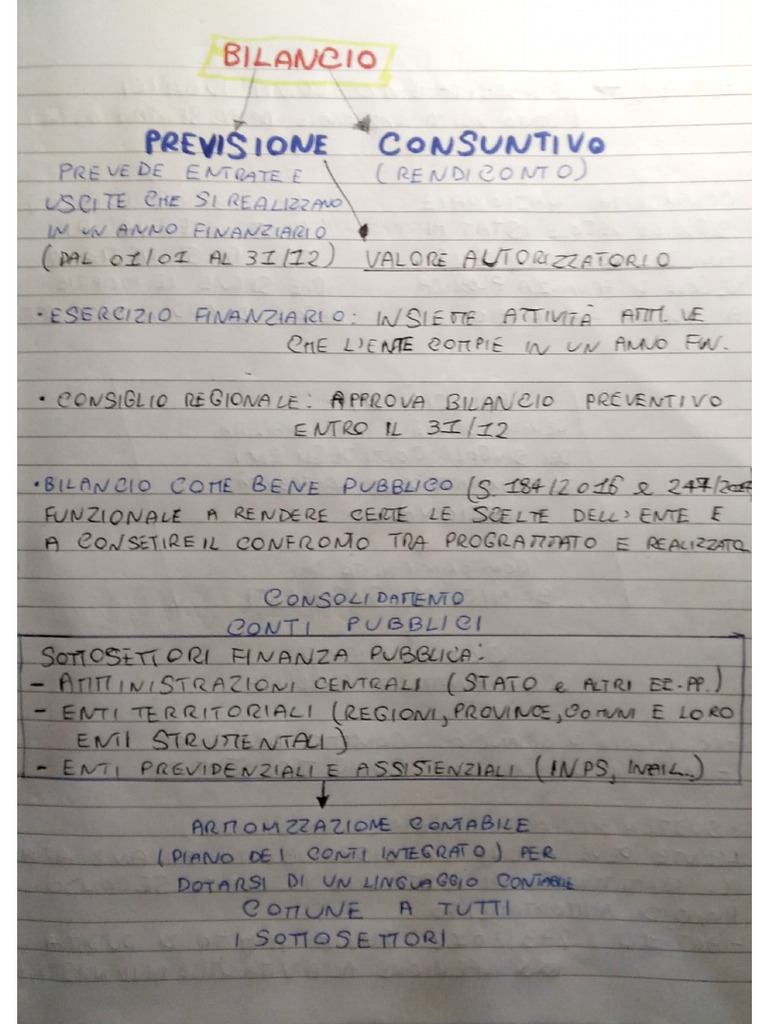 BILANCIO
PREVISIONE CONSUNTIVO
PREVEDE ENTRATE E (RENDICONTO)
USCITE CHE SI REALIZZANO
IN UN ANNO FINANZIARIO
(DAL 01/01 AL 31/12) VALORE AUTORIZZATORIO
• ESERCIZIO FINANZIARIO: INSIEME ATTIVITÀ AMM.VE
CHE L'ENTE COMPIE IN UN ANNO FIN.
• CONSIGLIO REGIONALE: APPROVA BILANCIO PREVENTIVO
ENTRO IL 31/12
• BILANCIO COME BENE PUBBLICO (S. 184/2016 e 247/2017
FUNZIONALE A RENDERE CERTE LE SCELTE DELL'ENTE E
A CONSETIRE IL CONFRONTO TRA PROGRAMMATO E REALIZZATO
CONSOLIDAMENTO
CONTI PUBBLICI
SOTTOSETTORI FINANZA PUBBLICA:
- AMMINISTRAZIONI CENTRALI (STATO e ALTRI EE.PP.)
- ENTI TERRITORIALI (REGIONI, PROVINCE, COMUNI E LORO
ENTI STRUMENTALI)
- ENTI PREVIDENZIALI E ASSISTENZIALI (INPS, INAIL..)
ARMONIZZAZIONE CONTABILE
(PIANO DEI CONTI INTEGRATO) PER
DOTARSI DI UN LINGUAGGIO CONTABILE
COMUNE A TUTTI
I SOTTOSETTORI